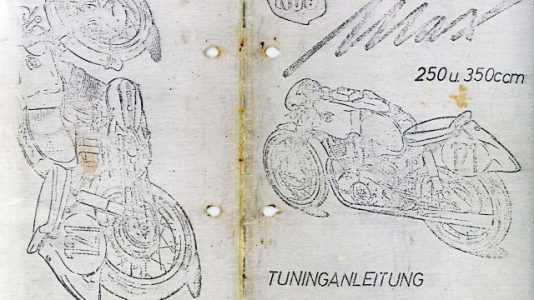 NSU
Max
250 u. 350ccm
TUNINGANLEITUNG